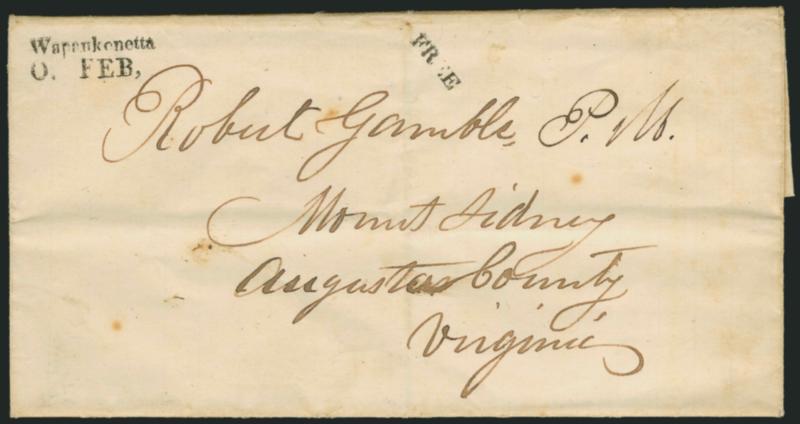 Wapaukonetta
O. FEB,
FREE
Robert Gamble, P. M.
Mount Sidney
Augusta County
Virginia